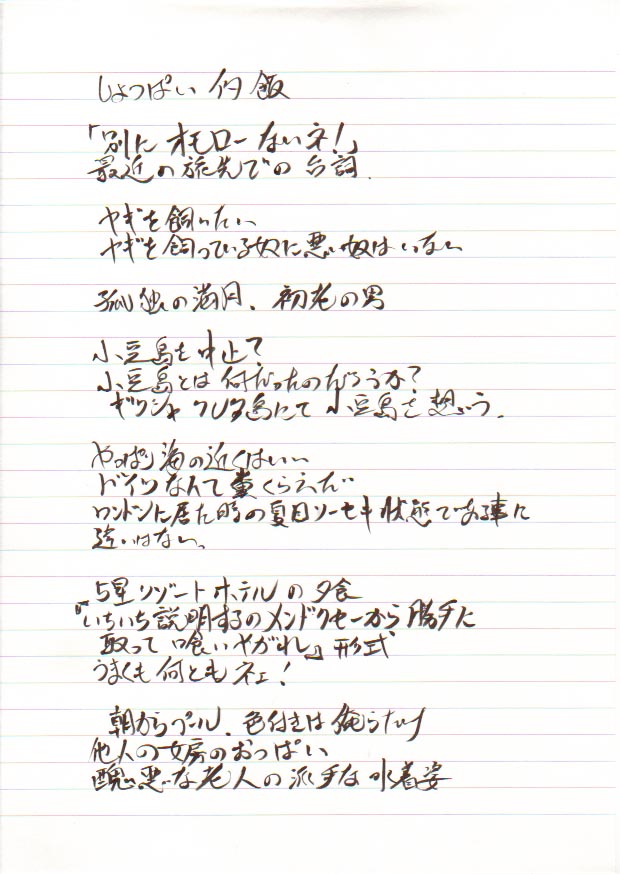 しょっぱい 夕飯
「別に オモローないネ!」
最近の旅先での台詞.
ヤギを飼いたい
ヤギを飼っている奴に悪い奴はいない
孤独の満月、初老の男
小豆島を中止?
小豆島とは何だったのだろうか?
ギリシャ クレタ島にて 小豆島を想う.
やっぱり海の近くはいい
ドイツなんて糞くらえだ
ロンドンに居た時の夏目ソーセキ状態である事に
違いはない。
5星リゾートホテルの夕食
『いちいち説明するのメンドクセーから勝手に
取って喰いやがれ』形式
うまくも何ともネェ!
朝からプール、色付きは俺らだけ
他人の女房のおっぱい
醜悪な老人の派手な水着姿